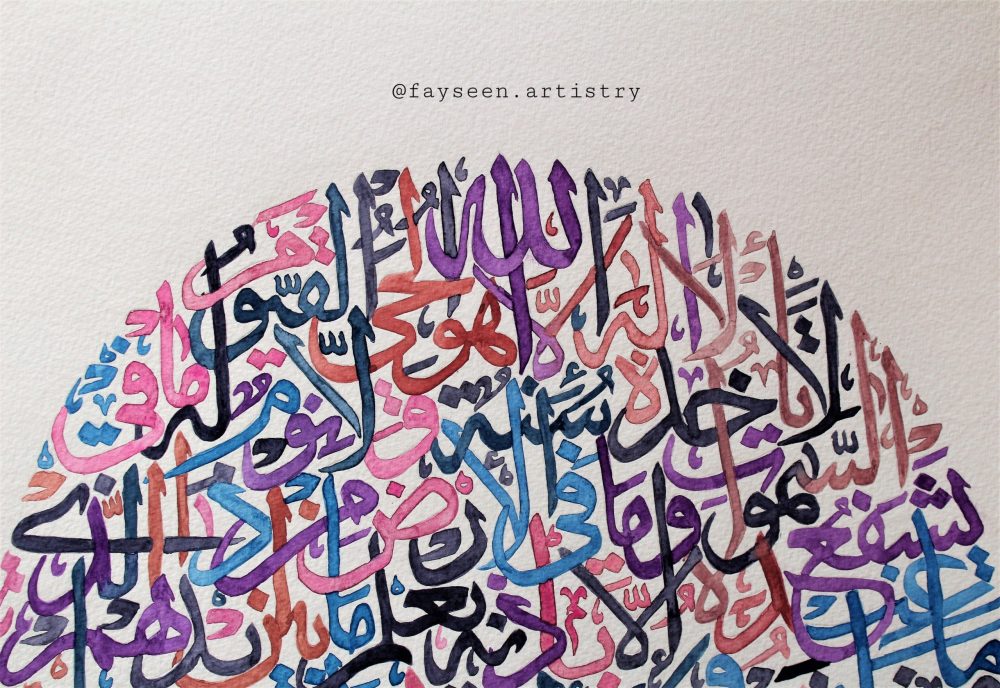 @fayseen.artistry
الله لا إله إلا هو الحي القيوم
لا تأخذه سنة ولا نوم له ما في
السموات وما في الأرض من ذا الذي
يشفع عنده إلا بإذنه يعلم ما بين أيديهم